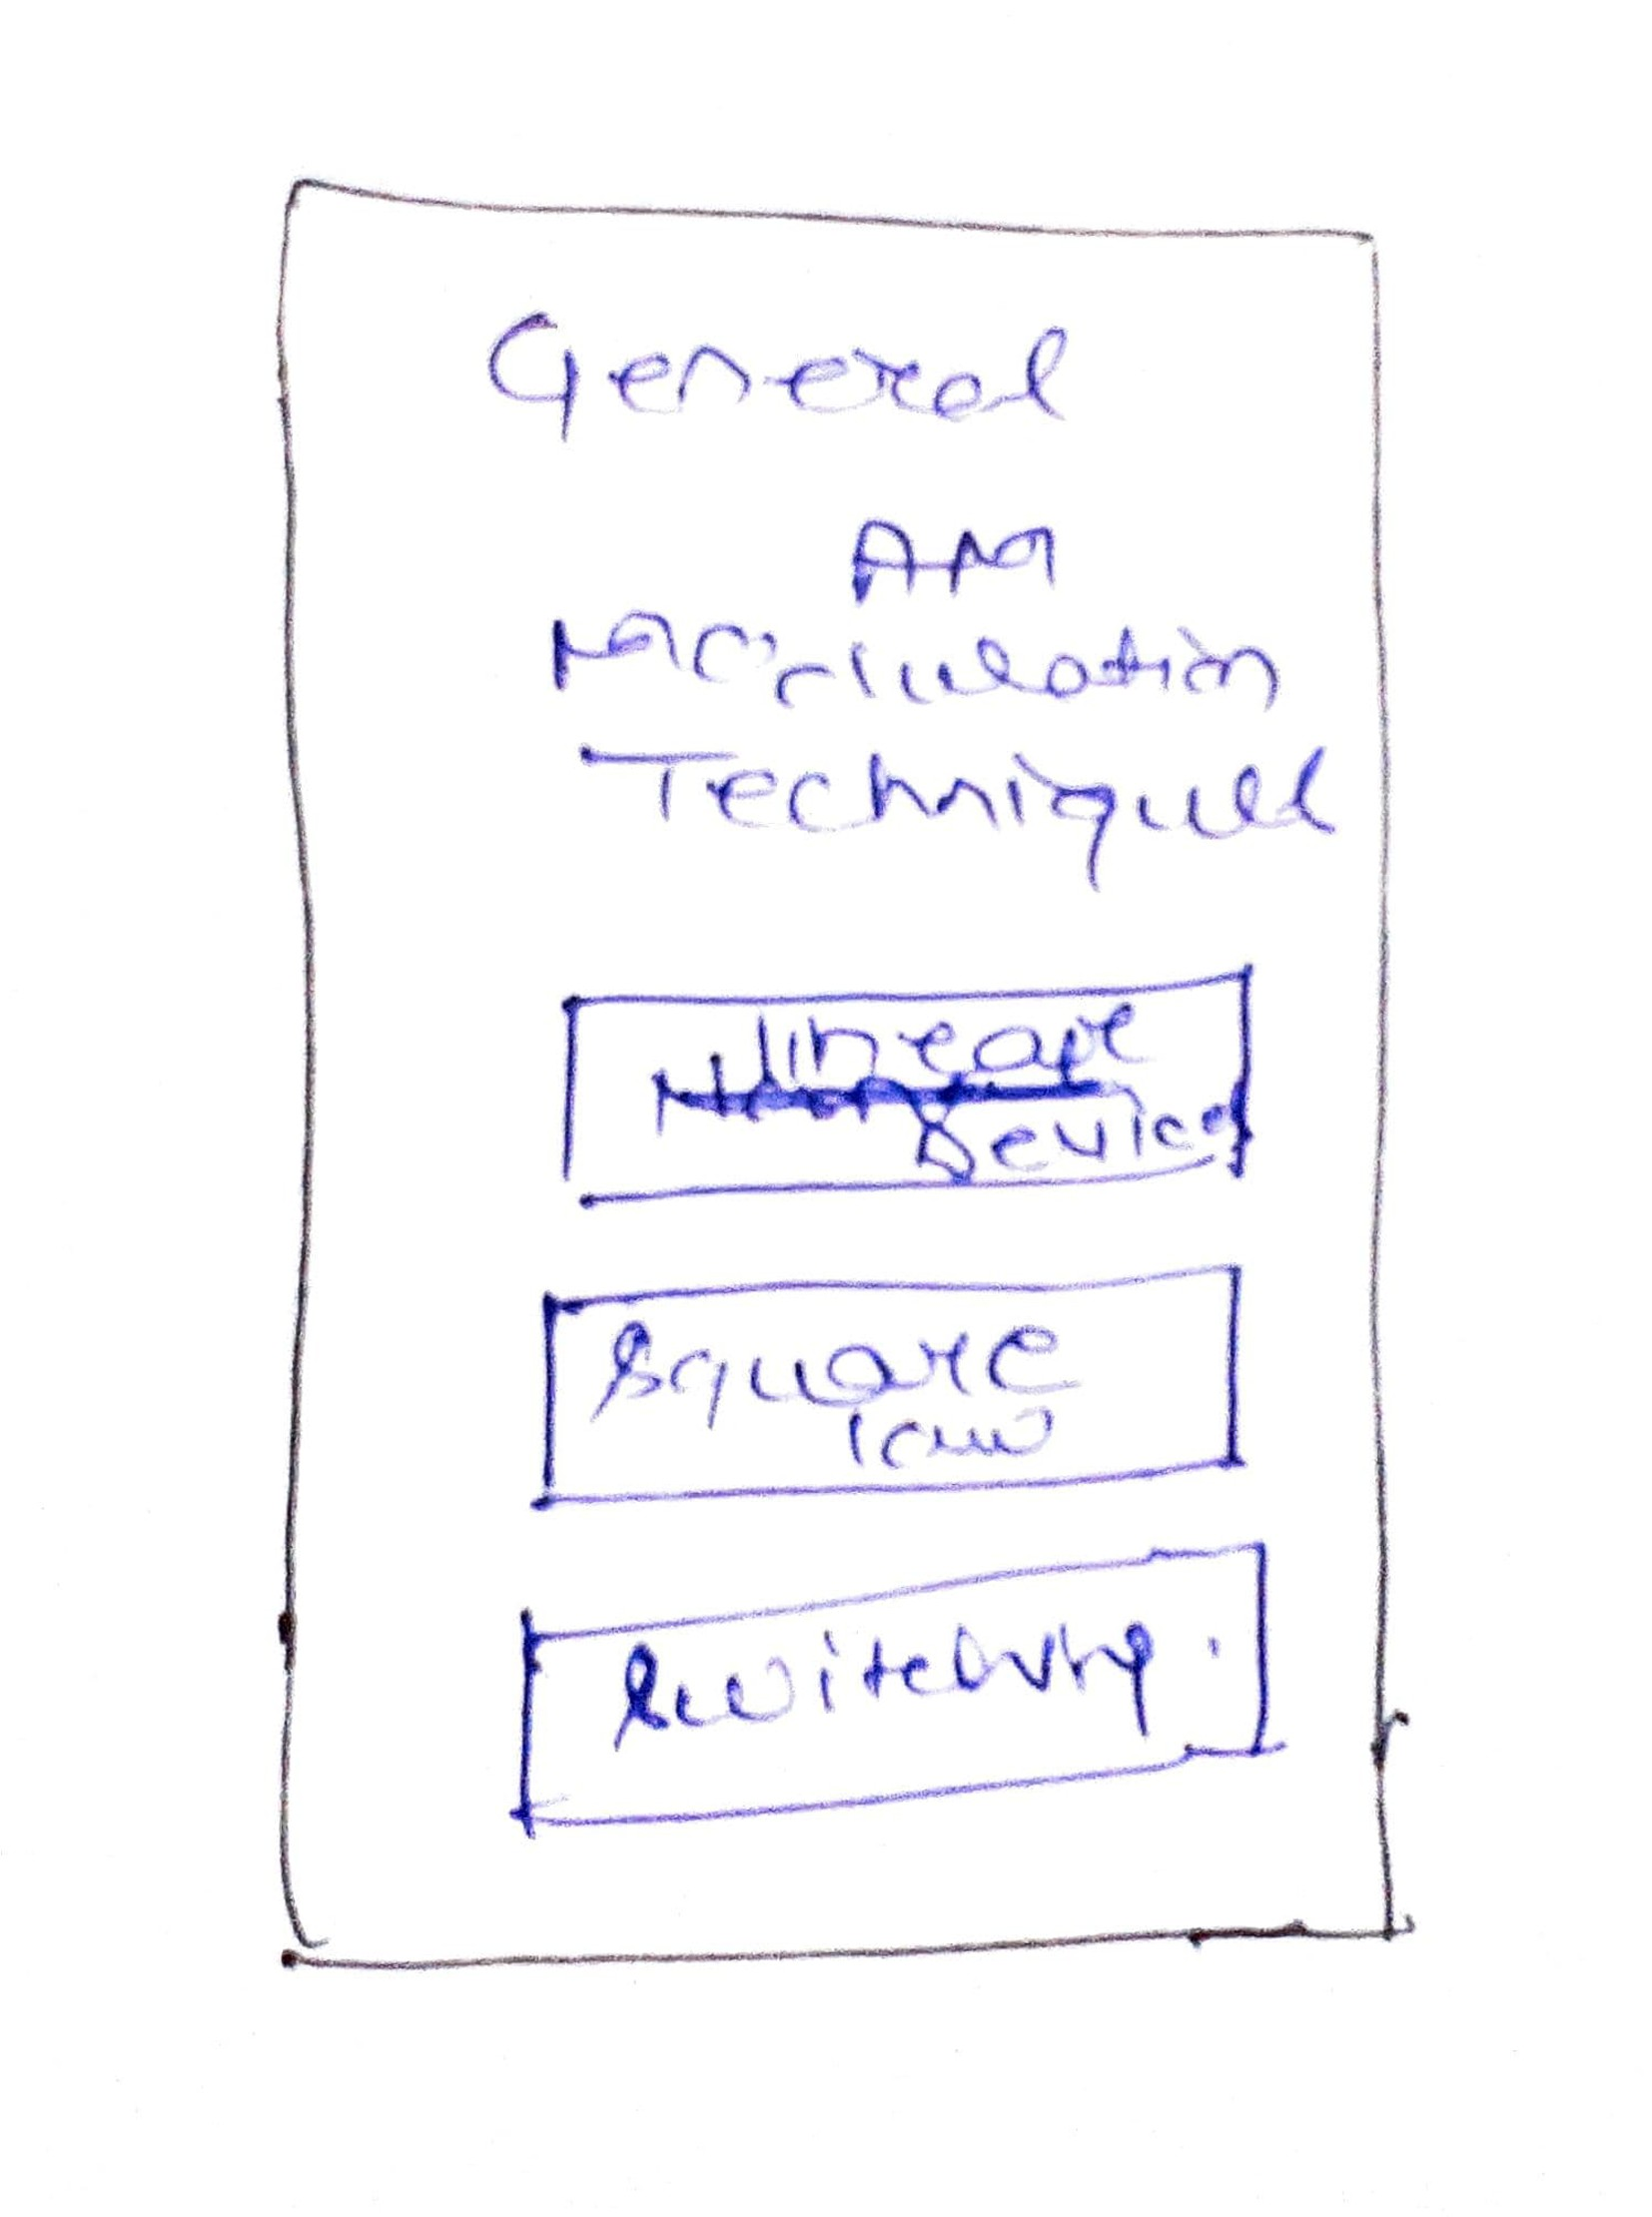 General
AM
Modulation
Techniques
lineare
Device
Square
law
Switching.